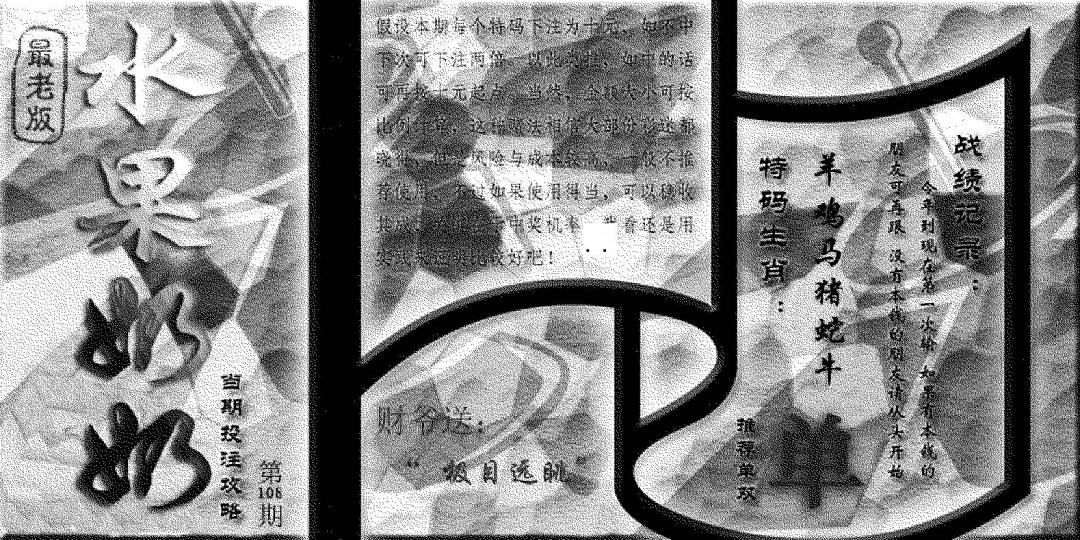 最老版
水果奶奶
当期投注攻略
第108期
假设本期每个特码下注为十元，如不中
下次可下注两倍，以此类推，如中的话
可再按十元起点，当然，金额大小可按
比例打算，这种算法相信大部份彩迷都
晓得，但是风险与成本较高，一般不推
荐使用，不过如果使用得当，可以稳收
中奖机率 看还是用
比较好吧！
财爷送：
“极目远眺”
战绩记录：
今年到现在第一次输 如果有本钱的
朋友可再跟 没有本钱的朋友请从头开始
羊鸡马猪蛇牛
特码生肖：
推荐单双
单